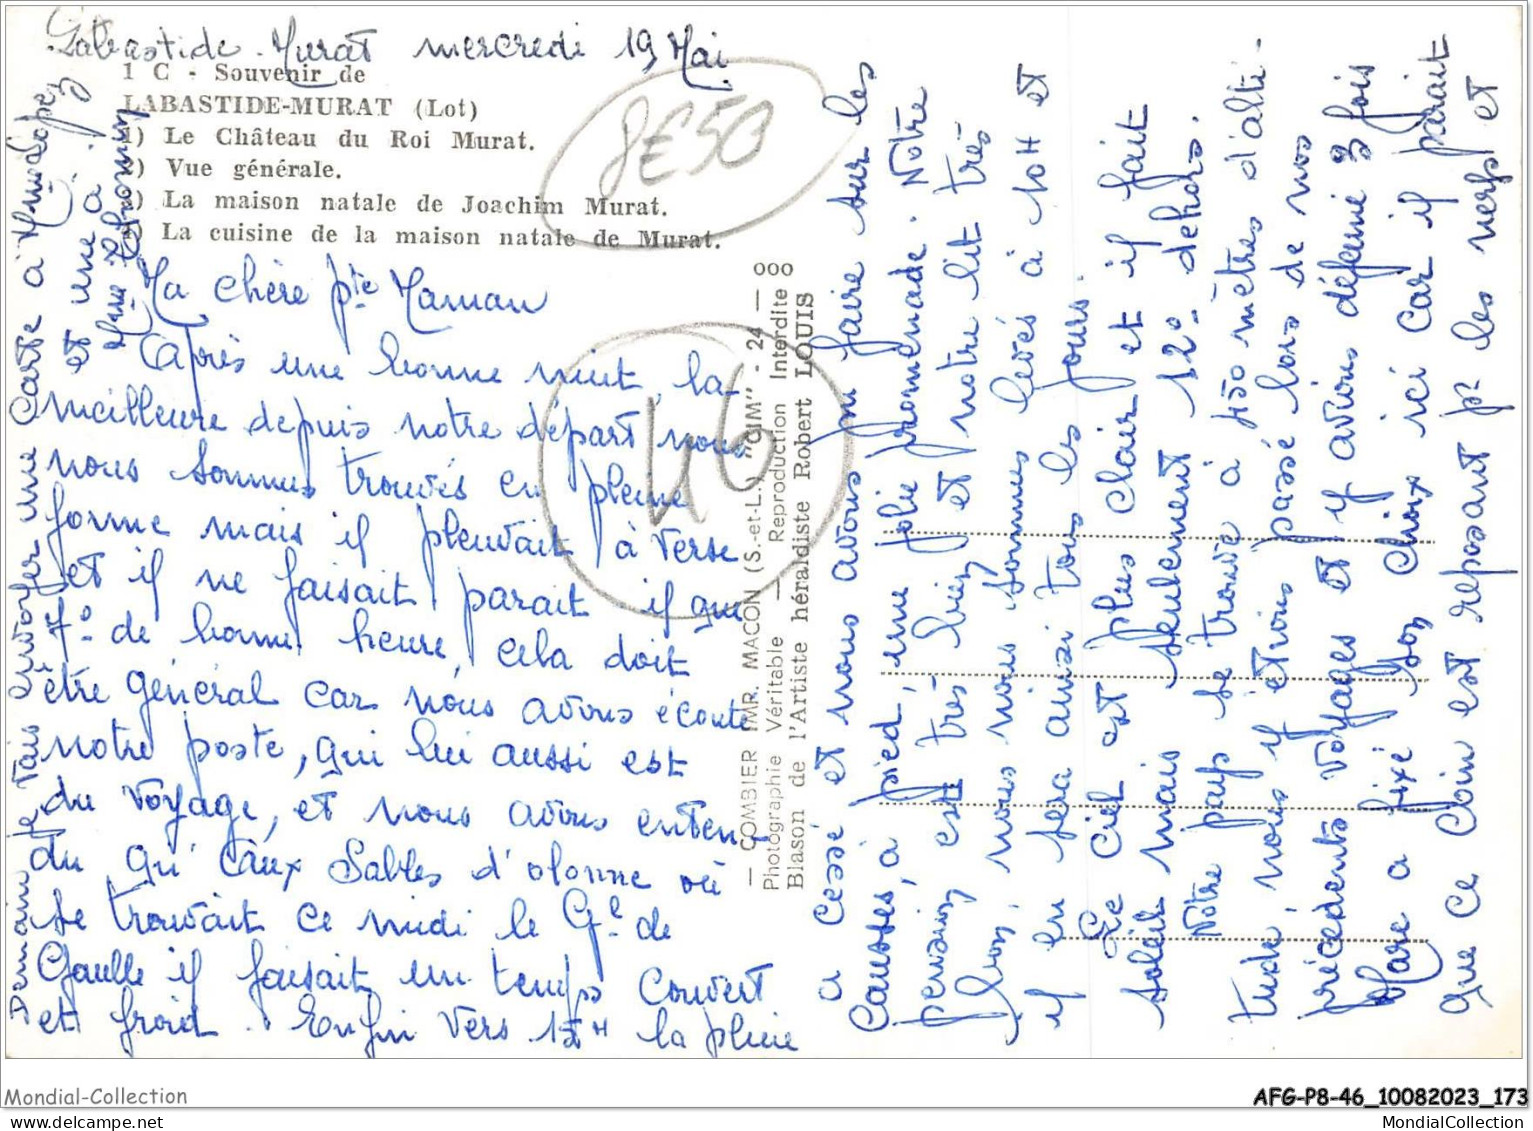 Labastide-Murat mercredi 19 Mai
1 C - Souvenir de
LABASTIDE-MURAT (Lot)
1) Le Château du Roi Murat.
2) Vue générale.
3) La maison natale de Joachim Murat.
4) La cuisine de la maison natale de Murat.
8E50
46
Ma chère pte Maman
Après une bonne nuit, la
meilleure depuis notre départ nous
nous sommes trouvés en pleine
forme mais il pleuvait à verse
et il ne faisait parait il que
7° de bonne heure, cela doit
être général car nous avons écouté
notre poste, qui lui aussi est
du voyage, et nous avons enten-
du qu'aux Sables d'olonne où
se trouvait ce midi le Gl de
Gaulle il faisait un temps couvert
et froid. Enfin vers 15H la pluie
a cessé et nous avons pu faire sur les
Causses, à pied, une jolie promenade. Notre
pension est très bien et notre lit très
bon, nous nous sommes levés à 10H et
il en sera ainsi tous les jours.
Le ciel est plus clair et il fait
soleil mais seulement 12° dehors.
Notre pays se trouve à 450 mètres d'alti-
tude, nous y étions passé lors de nos
précédents voyages et y avions déjeuné 3 fois
Marc a fixé son choix ici car il parait
que ce coin est reposant pr les nerfs et
Demain je vais envoyer une carte à Mme Lopez
et une à
Mme Thomin
— COMBIER IMP. MACON (S.-et-L.) "CIM" - 24 — ooo
Photographie Véritable — Reproduction Interdite
Blason de l'Artiste héraldiste Robert LOUIS
Mondial-Collection
AFG-P8-46_10082023_173
MondialCollection